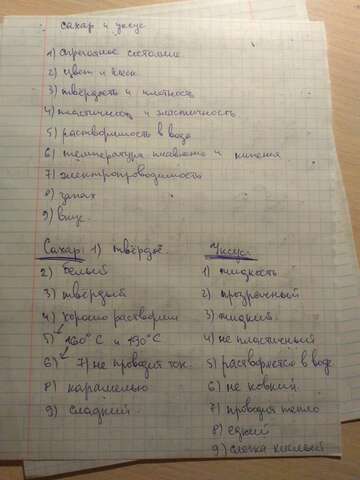 сахар и уксус
1) агрегатное состояние
2) цвет и блеск
3) твёрдость и плотность
4) пластичность и эластичность
5) растворимость в воде
6) температура плавления и кипения
7) электропроводимость
8) запах
9) вкус.
Сахар: 1) твёрдое.
2) белый
3) твёрдый
4) хорошо растворим
5) 160°C и 190°C
6) 7) не проводит ток.
8) карамелью
9) сладкий.
Уксус:
1) жидкость
2) прозрачный
3) жидкий.
4) не пластичный
5) растворяется в воде
6) не ковкий.
7) проводит тепло
8) едкий
9) слегка кислый